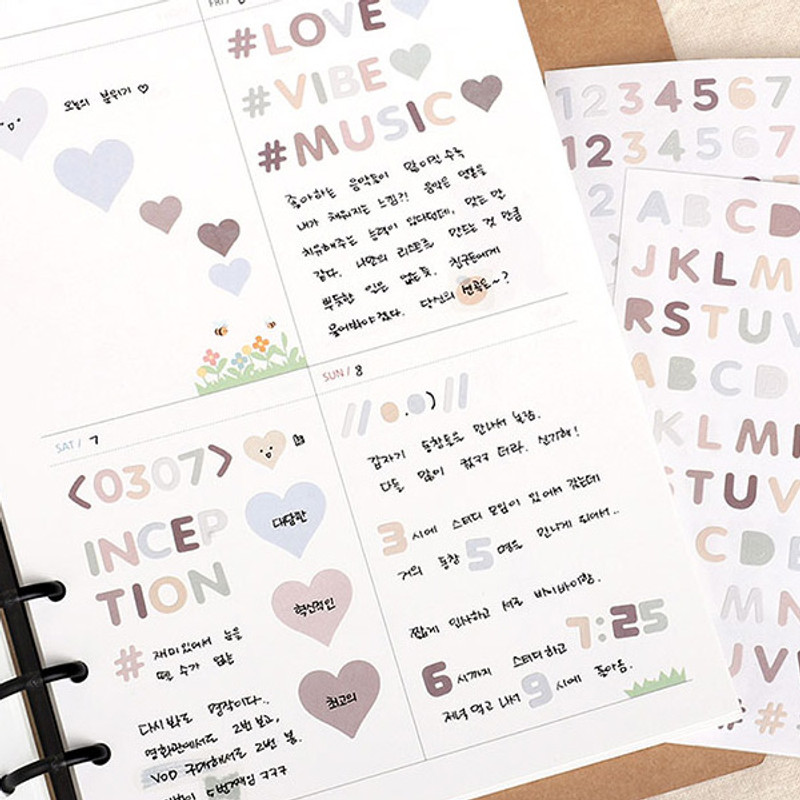 FRI / 6
오늘의 분위기 ♡
#LOVE
#VIBE
#MUSIC
좋아하는 음악들이 많아질 수록
내가 채워지는 느낌?! 음악은 영혼을
치유해주는 능력이 있다던데, 맞는 말
같다. 나만의 리스트를 만드는 것 만큼
뿌듯한 일은 없는듯. 친구들에게
물어봐야겠다. 당신의 선곡은~?
SAT / 7
<0307>
INCEP
TION
# 재미있어서 눈을
뗄 수가 없는
대담한
혁신적인
최고의
다시 봐도 명작이다..
영화관에서도 2번 보고,
VOD 구매해서도 2번 봄.
5번째임 ㅋㅋㅋ
SUN / 8
갑자기 동창들을 만나서 놀람.
다들 많이 컸ㅋㅋ 더라. 신기해!
3시에 스터디 모임이 있어서 갔는데
거의 동창 5명을 만나게 되어서..
짧게 인사하고 서로 바이바이함.
6시까지 스터디하고 7:25
저녁 먹고 나서 9시에 돌아옴.
1234567
1234567
2
ABCD
JKLM
RSTUV
ABCD
KLMN
STUV
CDE
MN
UV
# #